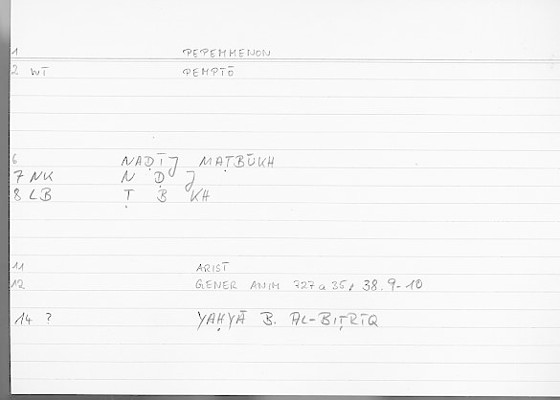 1 PEPEMMENON
2 WT PEMPTŌ
6 NAḌĪJ MAṬBŪKH
7 NK N Ḍ J
8 LB Ṭ B KH
11 ARIST
12 GENER ANIM 727 a 35, 38.9-10
14 ? YAḤYĀ B. AL-BIṬRĪQ